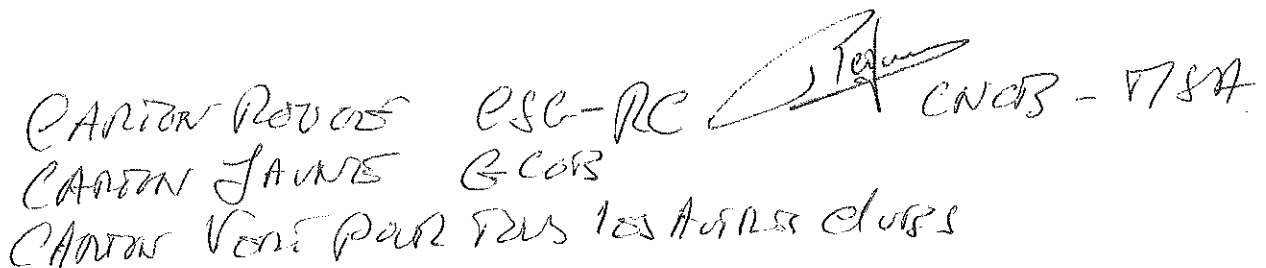 CARTON ROUGE CSG-RC CNCB - MSA
CARTON JAUNE GCOB
CARTON Vert POUR TOUS les AUTRES clubs